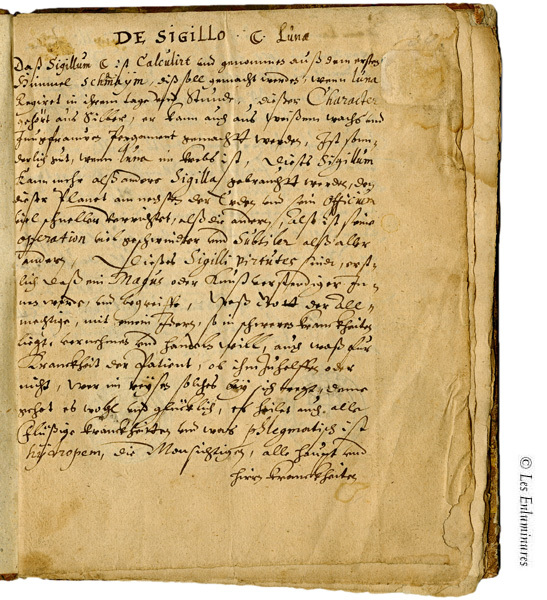 DE SIGILLO. ☾. Lunæ
Daß Sigillum ☾ ist Calculirt und genommen auß dem ersten
Himmel Schmaÿm, diß soll gemacht werden, wenn luna
Regiret in ihrem tage und Stunde, dießer Character
gehört auf Silber, er kann auch auf weißem wachs und
Jungfrauwen Pergament gemacht werden, Ist son-
derlich gut, wenn luna im krebs ist, Dießes Sigillum
kann mehr alß andere Sigilla gebraucht werden, den
dießer Planet am negsten der Erden und sein officium
viel schneller verrichtet, alß die andern, alß ist seine
operation viel geschwinder und Subtiler alß aller
andern. Dießes Sigilli virtutes sind, erst-
lich daß ein Magus oder kunstverstendiger
und begreifft, Waß Gott der alle-
mechtige, mit einem so in schweren kranckheiten
liegt, vornehmen und handeln will, auch waß für
Kranckheit der Patient, ob ihm zuhelffen oder
nicht, wer im reÿsen solches beÿ sich tregt, deme
gehet es wohl und glücklich, es heilet auch alle
flüßige kranckheiten und waß phlegmatisch ist
hÿdropem, die Monsichtigen, alle haupt und
hirn kranckheiten
© Les Enluminures